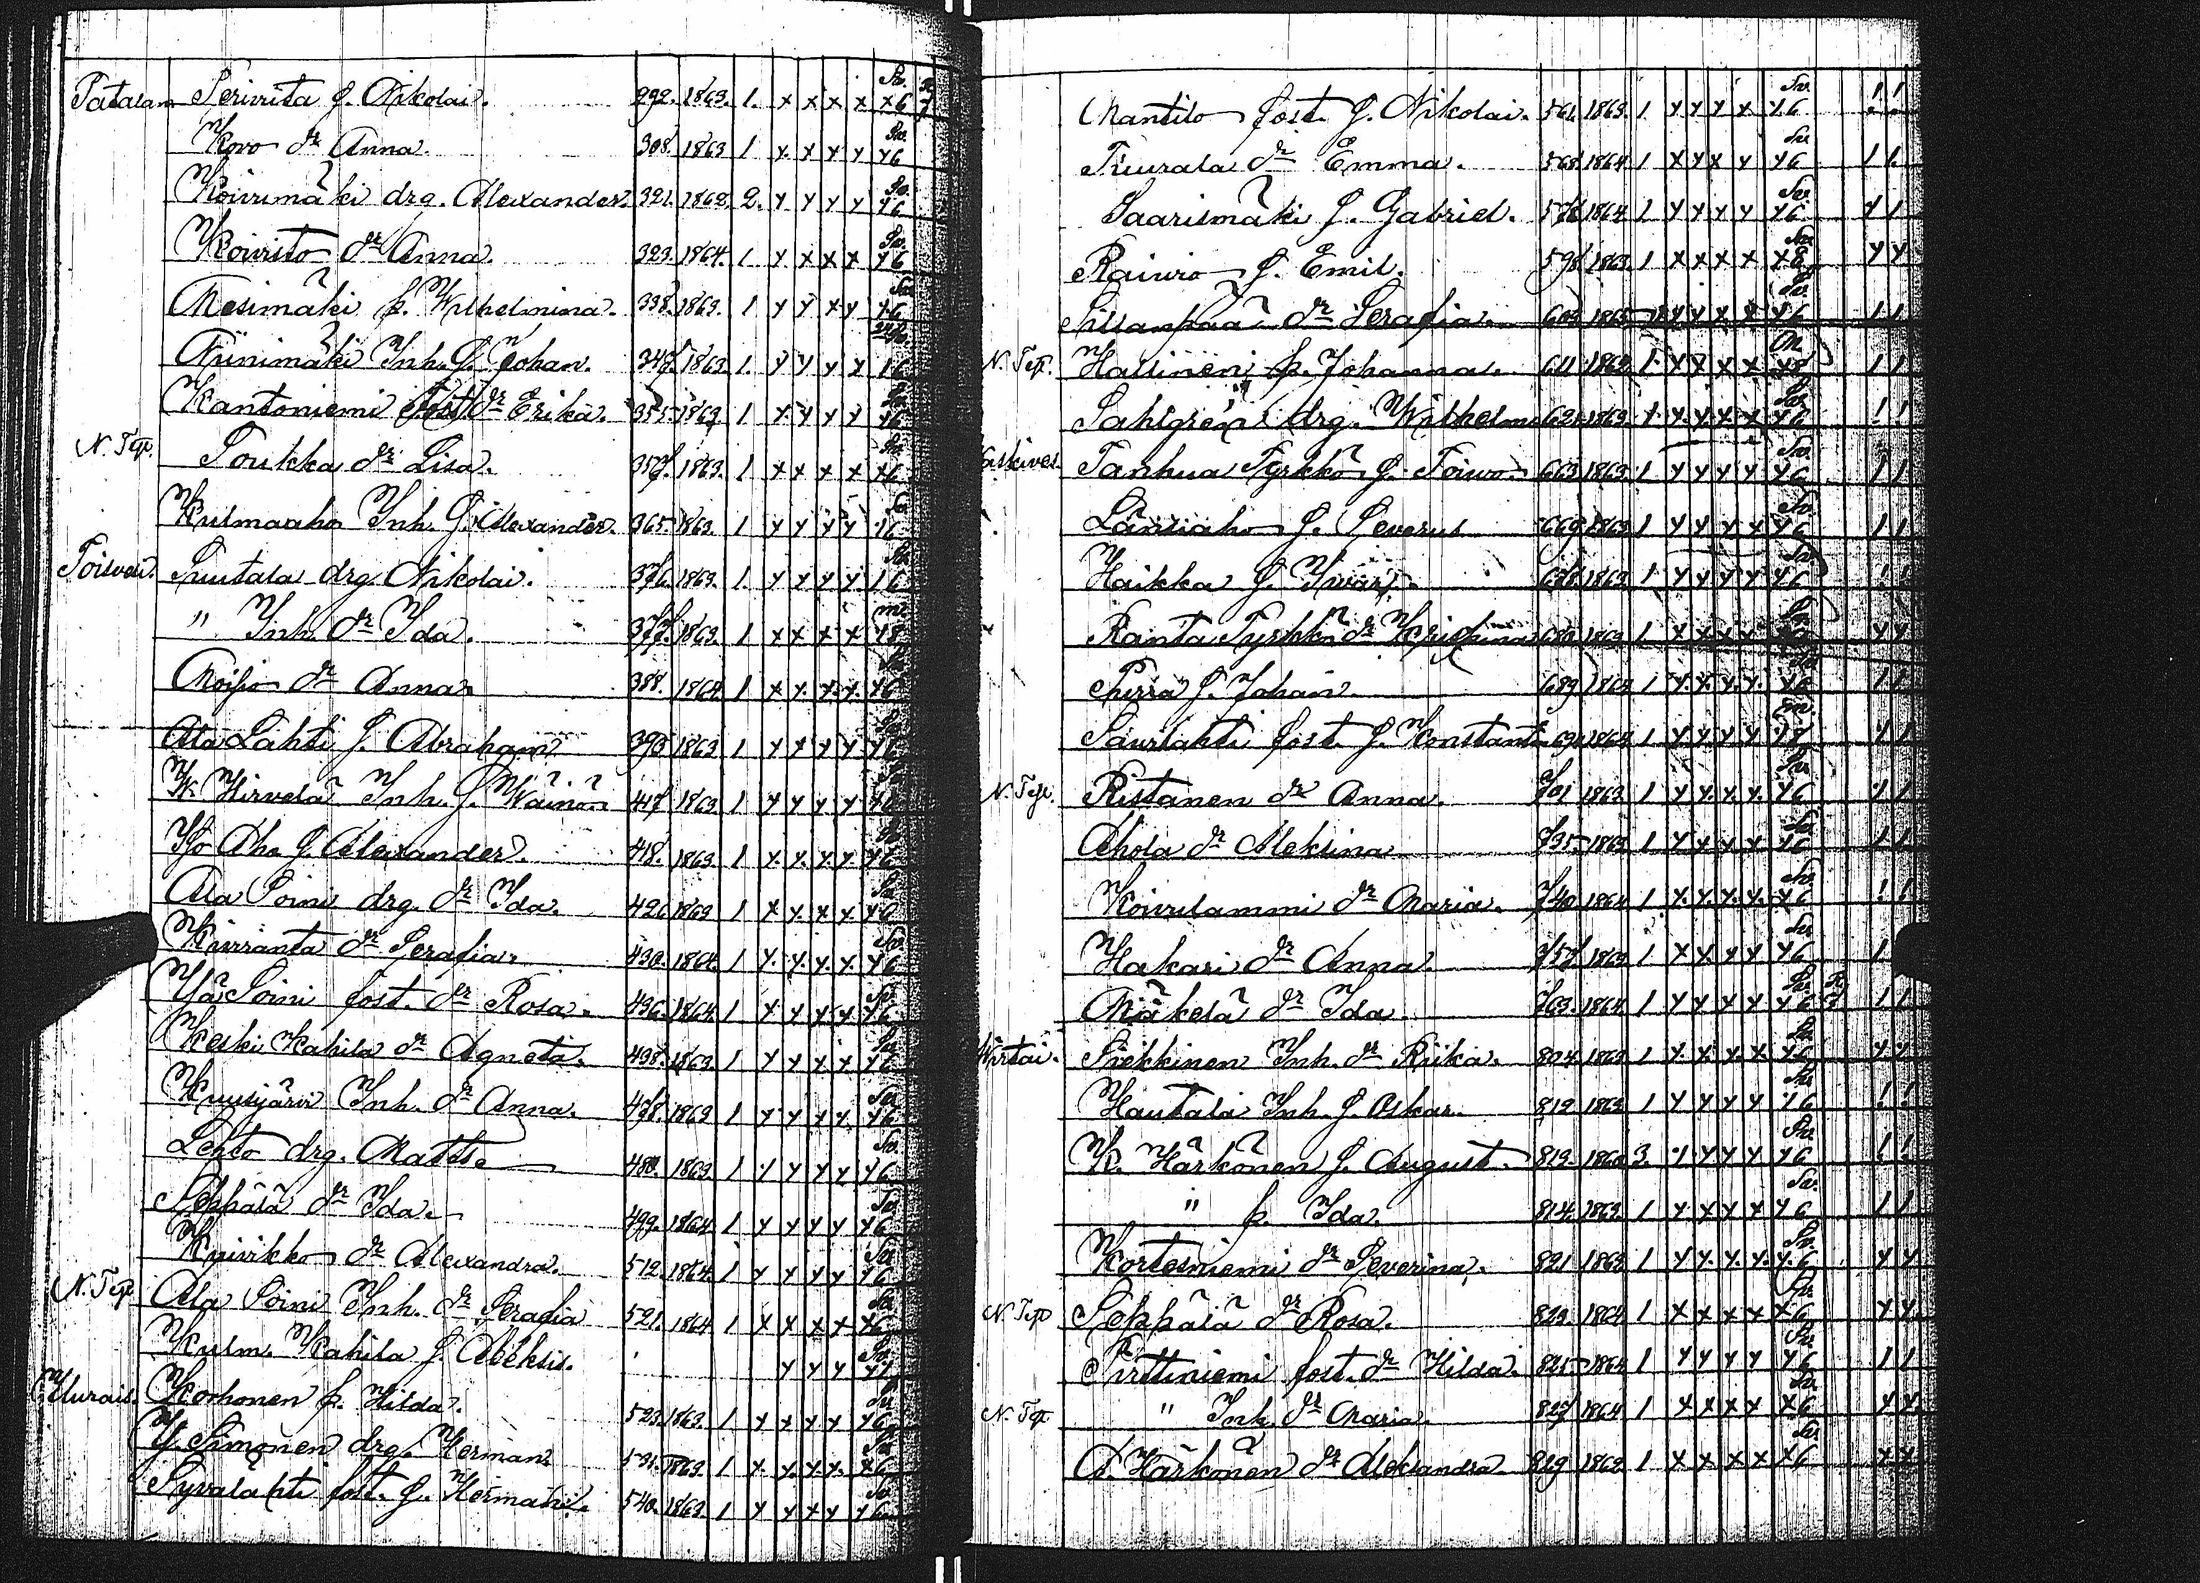 Sv. R
Patalan Perivita J. Nikolai. 292. 1863. 1. x x x x x6 7
Sv.
Kovo dr Anna. 308. 1863 1 y. x y y y6
Sv.
Koivumäki drg. Alexander. 321. 1862. 2. y y y y y6
Sv.
Koivisto dr Anna. 323. 1864. 1 y x x x y6
Sv.
Mesimäki p. Wilhelmina. 338. 1863. 1 y y x y y6
Niinimäki Inh. J. Johan. 347. 1863. 1. y y y y 16
Sv.
Kantoniemi fost dr Erika. 355. 1863. 1 y. y y y y6
Sv.
N. Tep. Poukka dr Lisa. 357. 1863. 1 x x x x x6
Sv.
Kulmaaho Inh. J. Alexander. 365. 1863. 1 y y y y 16
Sv.
Toiwen. Puutala drg. Nikolai. 376. 1863. 1. y y y y. 16
m
" Inh. dr Ida. 377. 1863. 1 x x x x y8
Sv.
Moisio dr Anna 388. 1864. 1 x y. y. y. y6
Sv.
Ala Lahti J. Abraham 390 1863 1 y y y y y6
Sv.
W. Hirvelä Inh. J. Wäinön 417 1863 1 y y y y y6
Sv.
Iso Aho J. Alexander. 418. 1863. 1 y. y. y. y y6
Sv.
Ala Soini drg. dr Ida. 426 1863 1 x y. x y y6
Sv.
Kiviranta dr Serafia. 430. 1864. 1 y. y. y. y. y6
Sv.
Yli Soini fost. dr Rosa. 436. 1864. 1 y y y y y6
Sv.
Keski Kahila dr Agneta. 438. 1863. 1 y y y x y6
Sv.
Kuusijärvi Inh. dr Anna. 478. 1863 1 y y y y y6
Sv.
Lehto drg. Matts. 480. 1863. 1 y y y y y6.
Sv.
Seppälä dr Ida. 499. 1864 1 y y y y y6
Sv.
Kuivikko dr Alexandra. 512. 1864. 1 y y y y y6
Sv.
N. Tep Ala Soini Inh. dr Serafia 521. 1864 1 x x x x x6
Sv.
Kulm. Kahila J. Aleksis. y y y
Sv.
Korhonen p. Hilda. 523. 1863. 1 y x x x y6
Sv.
Y. Simonen drg. Herman. 531. 1863. 1 y. y. y. y. x6
Sv.
Syvälahti fost. J. Herman. 540. 1863. 1 y y x y y6
Sv.
Mantilo fost. J. Nikolai. 561. 1863. 1 y y y y y6 ! !
Sv.
Tuurala dr Emma. 568. 1864. 1 x y x y y6 1 1.
Sv.
Saarismäki J. Gabriel. 1864 1 y y y y y6 y 1
Sv.
Rainio J. Emil. 598 1863. 1 x x x x x8 y y
Sv.
Sillanpää dr Serafia. 603 1865 y y x y y6 1 1
m.
N. Tep. Hallinen p. Johanna. 611 1862 1. x x x x x8 1 1
Sv.
Sahlgren drg. Wilhelm 621. 1863. 1. y. y. y. x y6 ! !
Sv.
Tanhua Tyrkkö J. Toiwo. 663 1863. 1 y y y y y6 1 1
Sv.
Länsiaho J. Severus 669 1863 1 y y y y y6 1 1
Sv.
Haikka J. Iwari. 678. 1863 1. y y y y y6 ! !
Sv.
Ranta Tyrkkö dr 1863 1 x x x y y y
Sv.
Purra J. Johan 689 1864 1 y. y. y. y. y6 1 1
m.
Saurlahti fost. J. Konstant. 1864 1 y. y. y. y y8 y 1
Sv.
N. Tep. Ristanen dr Anna. 701 1863 1 y y. y. y. y6 y 1
Sv.
Ahola dr Aleksina 735 1863 1 y y y y y6 1 1
Sv.
Koivulammi dr Maria. 740 1864 1 y. y. y. y. y6 ! !
Sv.
Hakari dr Anna. 757 1863 1. x x y y y6 1.
Sv. R
Mäkelä dr Ida. 763. 1864 1 y y y y y6 7 1 1
Sv.
Wirtai. Siekkinen Inh. dr Riika. 804 1863 1 y. x x. x. y6 y y
Sv.
Hautala Inh. J. Oskar. 812 1863 1 y y y y y6 ! !
Sv.
K. Härkönen J. August. 813. 1860. 3. y y y y y6 ! !
Sv.
" p. Ida. 814. 1863. 1 y x x y y6 1 1
Sv.
Kortesniemi dr Severina. 821 1863 1 y y. y. y. y. 6 y y
Sv.
N. Tep Seppälä dr Rosa. 823. 1864 1 x x x x x6 y y.
Sv.
Pirttiniemi fost. dr Hilda. 825. 1864 1 y y y y y6 1 1
Sv.
N. Tep. " Inh. dr Maria. 827 1864 1 x x x x x6 y y.
Sv.
A. Härkönen dr Aleksandra 829 1862 1 x. x x x x6 y y.